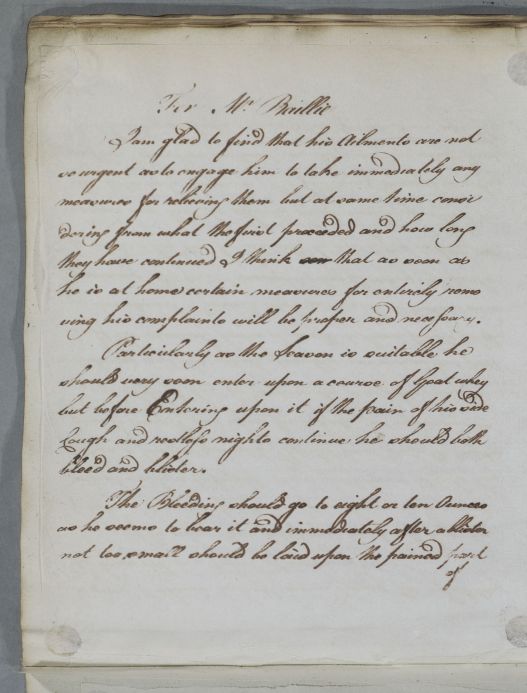 For Mr. Baillie
I am glad to find that his Ailments are not
so urgent as to engage him to take immediately any
measures for relieving them but at same time consi
dering from what they first proceeded and how long
they have continued I think that as soon as
he is at home certain measures for entirely remo
ving his complaints will be proper and necessary.
Particularly as the season is suitable he
should very soon enter upon a course of Goat whey
but before Entering upon it if the pain of his side
Cough and restless nights continue he should both
bleed and blister.
The Bleeding should go to eight or ten Ounces
as he seems to bear it and immediately after a blister
not too small should be laid upon the pained part
of